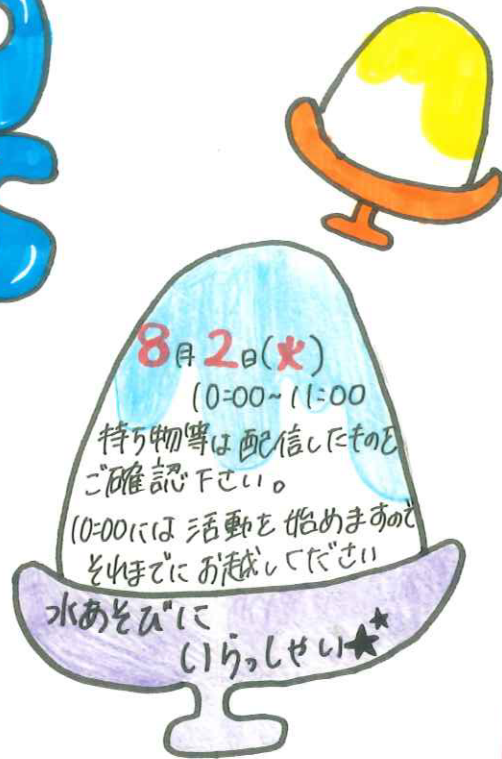 8月2日(火)
10:00~11:00
持ち物等は配信したものを
ご確認下さい。
10:00には活動を始めますので
それまでにお越しください
水あそびに
いらっしゃい★★